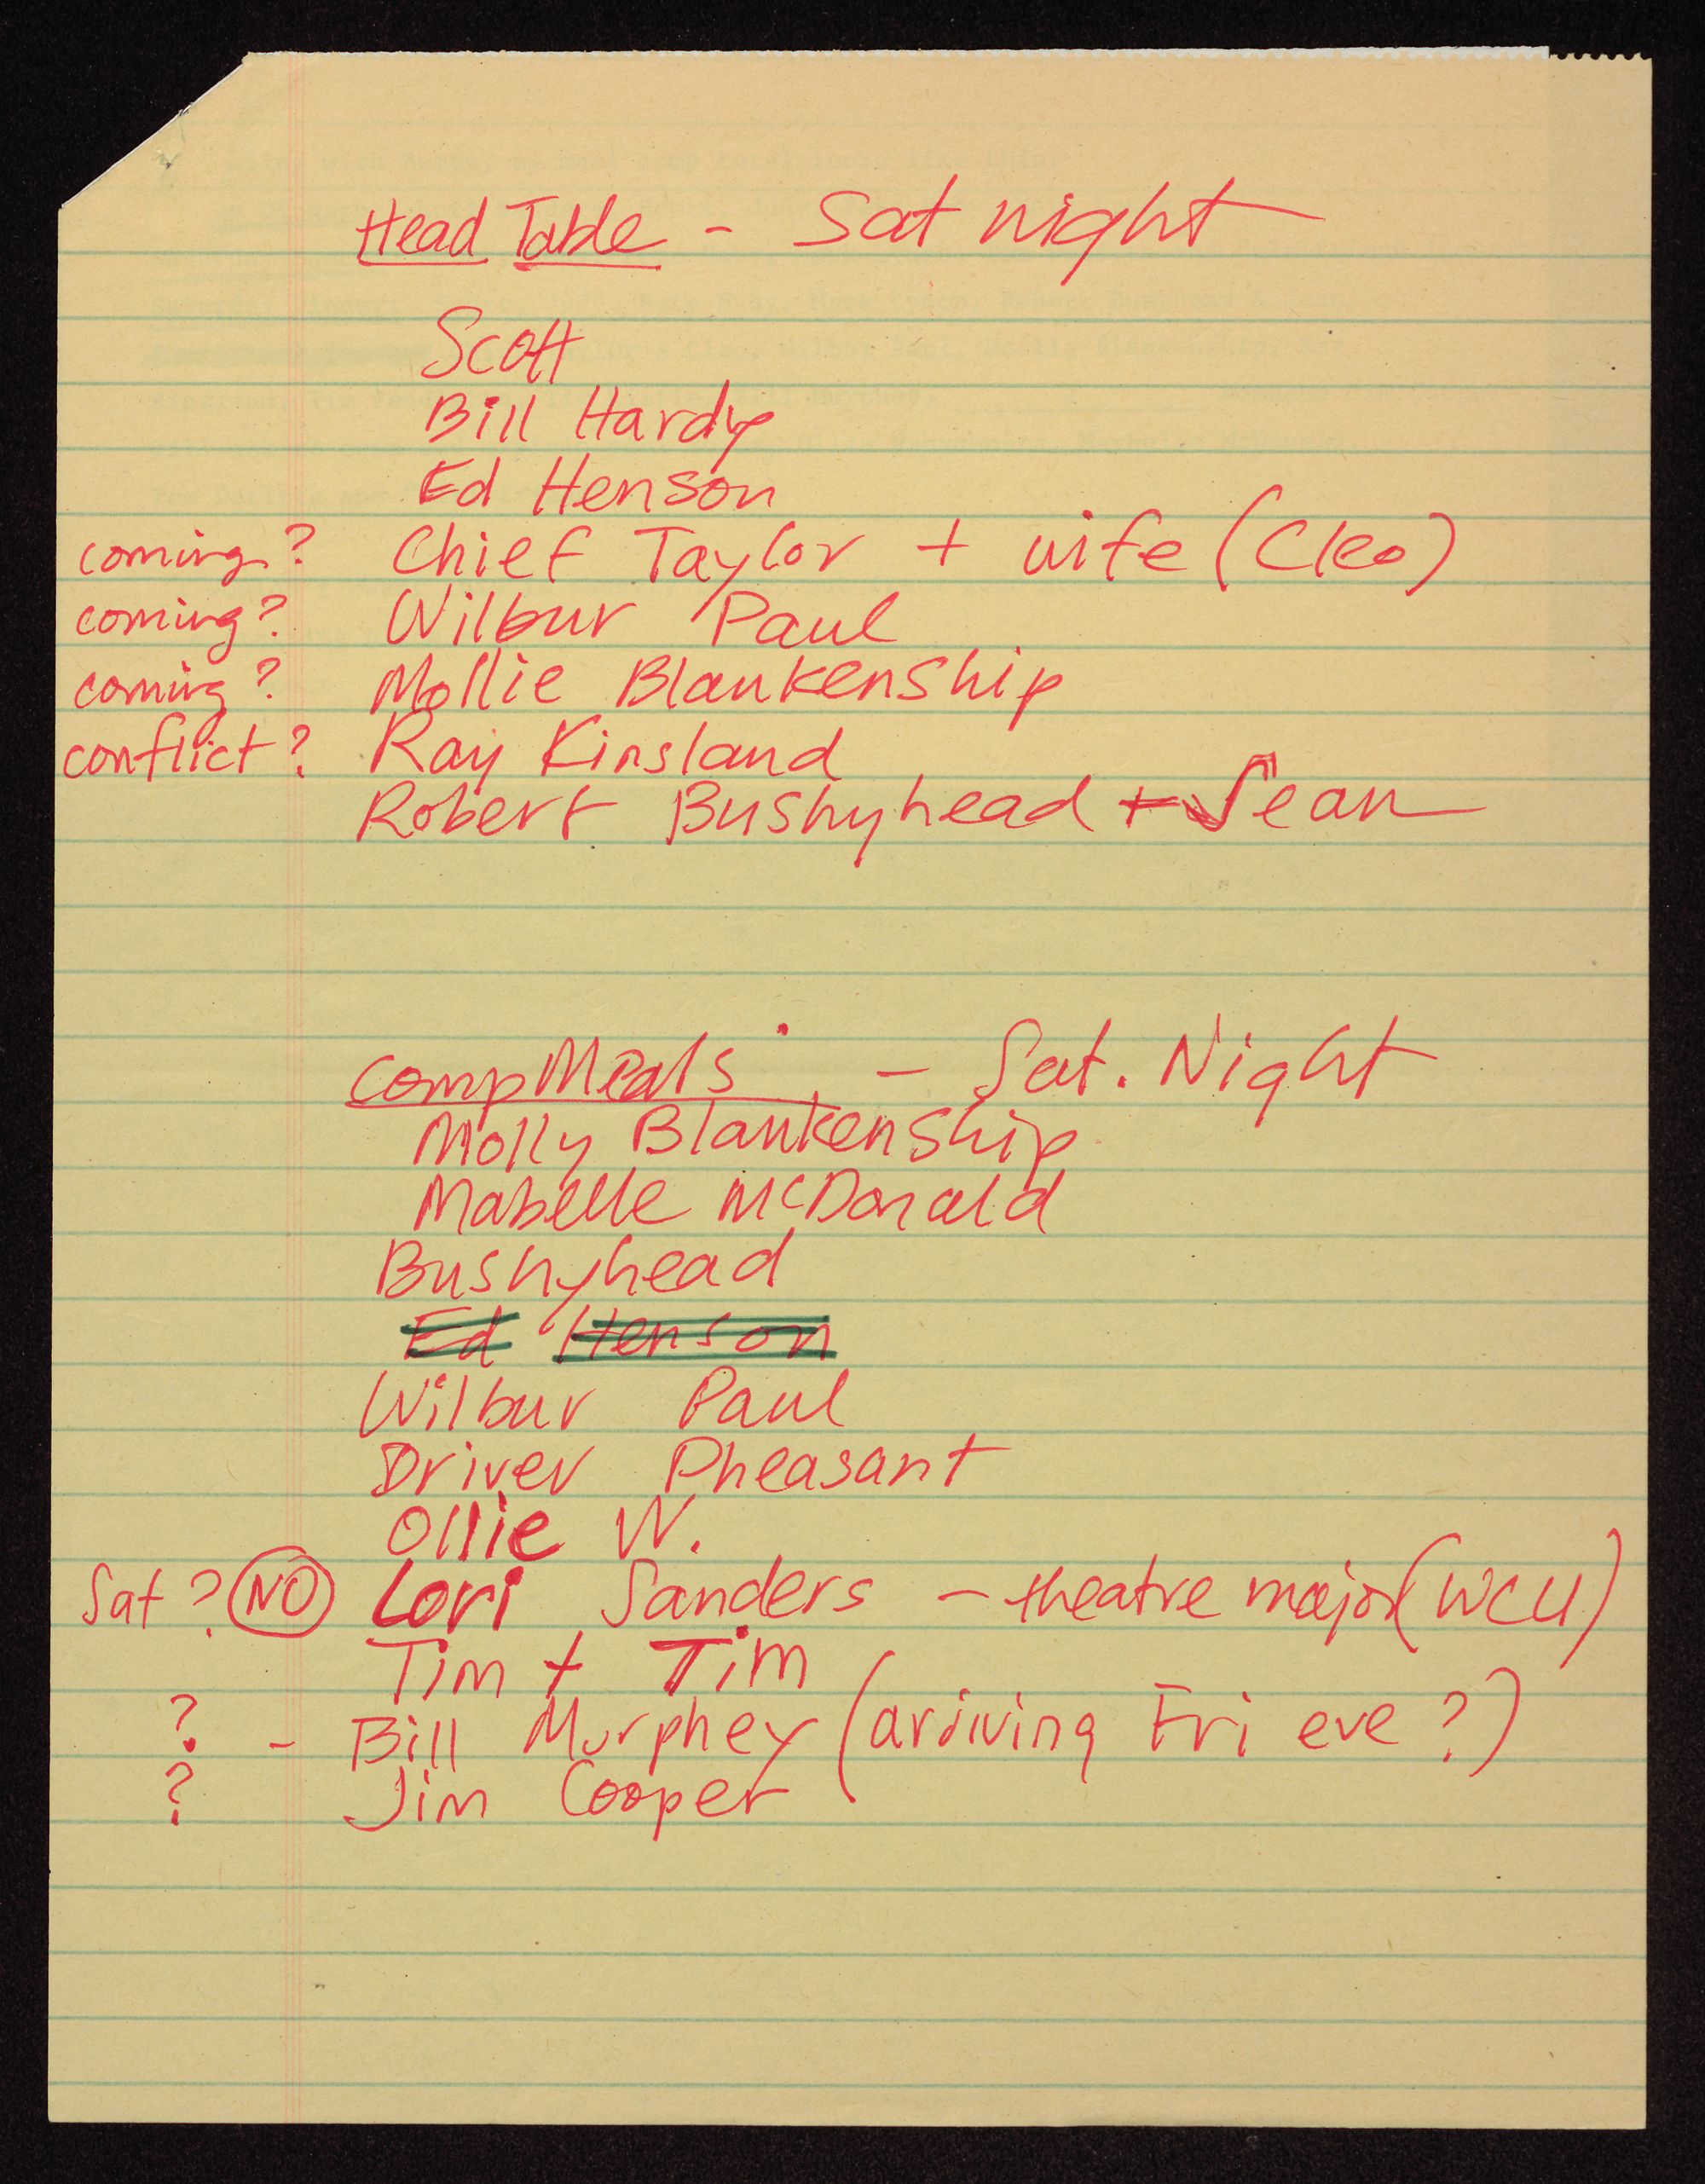 Head Table - Sat night
Scott
Bill Hardy
Ed Henson
coming? Chief Taylor + wife (Cleo)
coming? Wilbur Paul
coming? Mollie Blankenship
conflict? Ray Kinsland
Robert Bushyhead + Jean
Comp Meals - Sat. Night
Molly Blankenship
Mabelle McDonald
Bushyhead
Ed Henson
Wilbur Paul
Driver Pheasant
Ollie W.
Sat? NO Lori Sanders - theatre major (WCU)
Tim + Tim
? - Bill Murphey (arriving Fri eve?)
? Jim Cooper